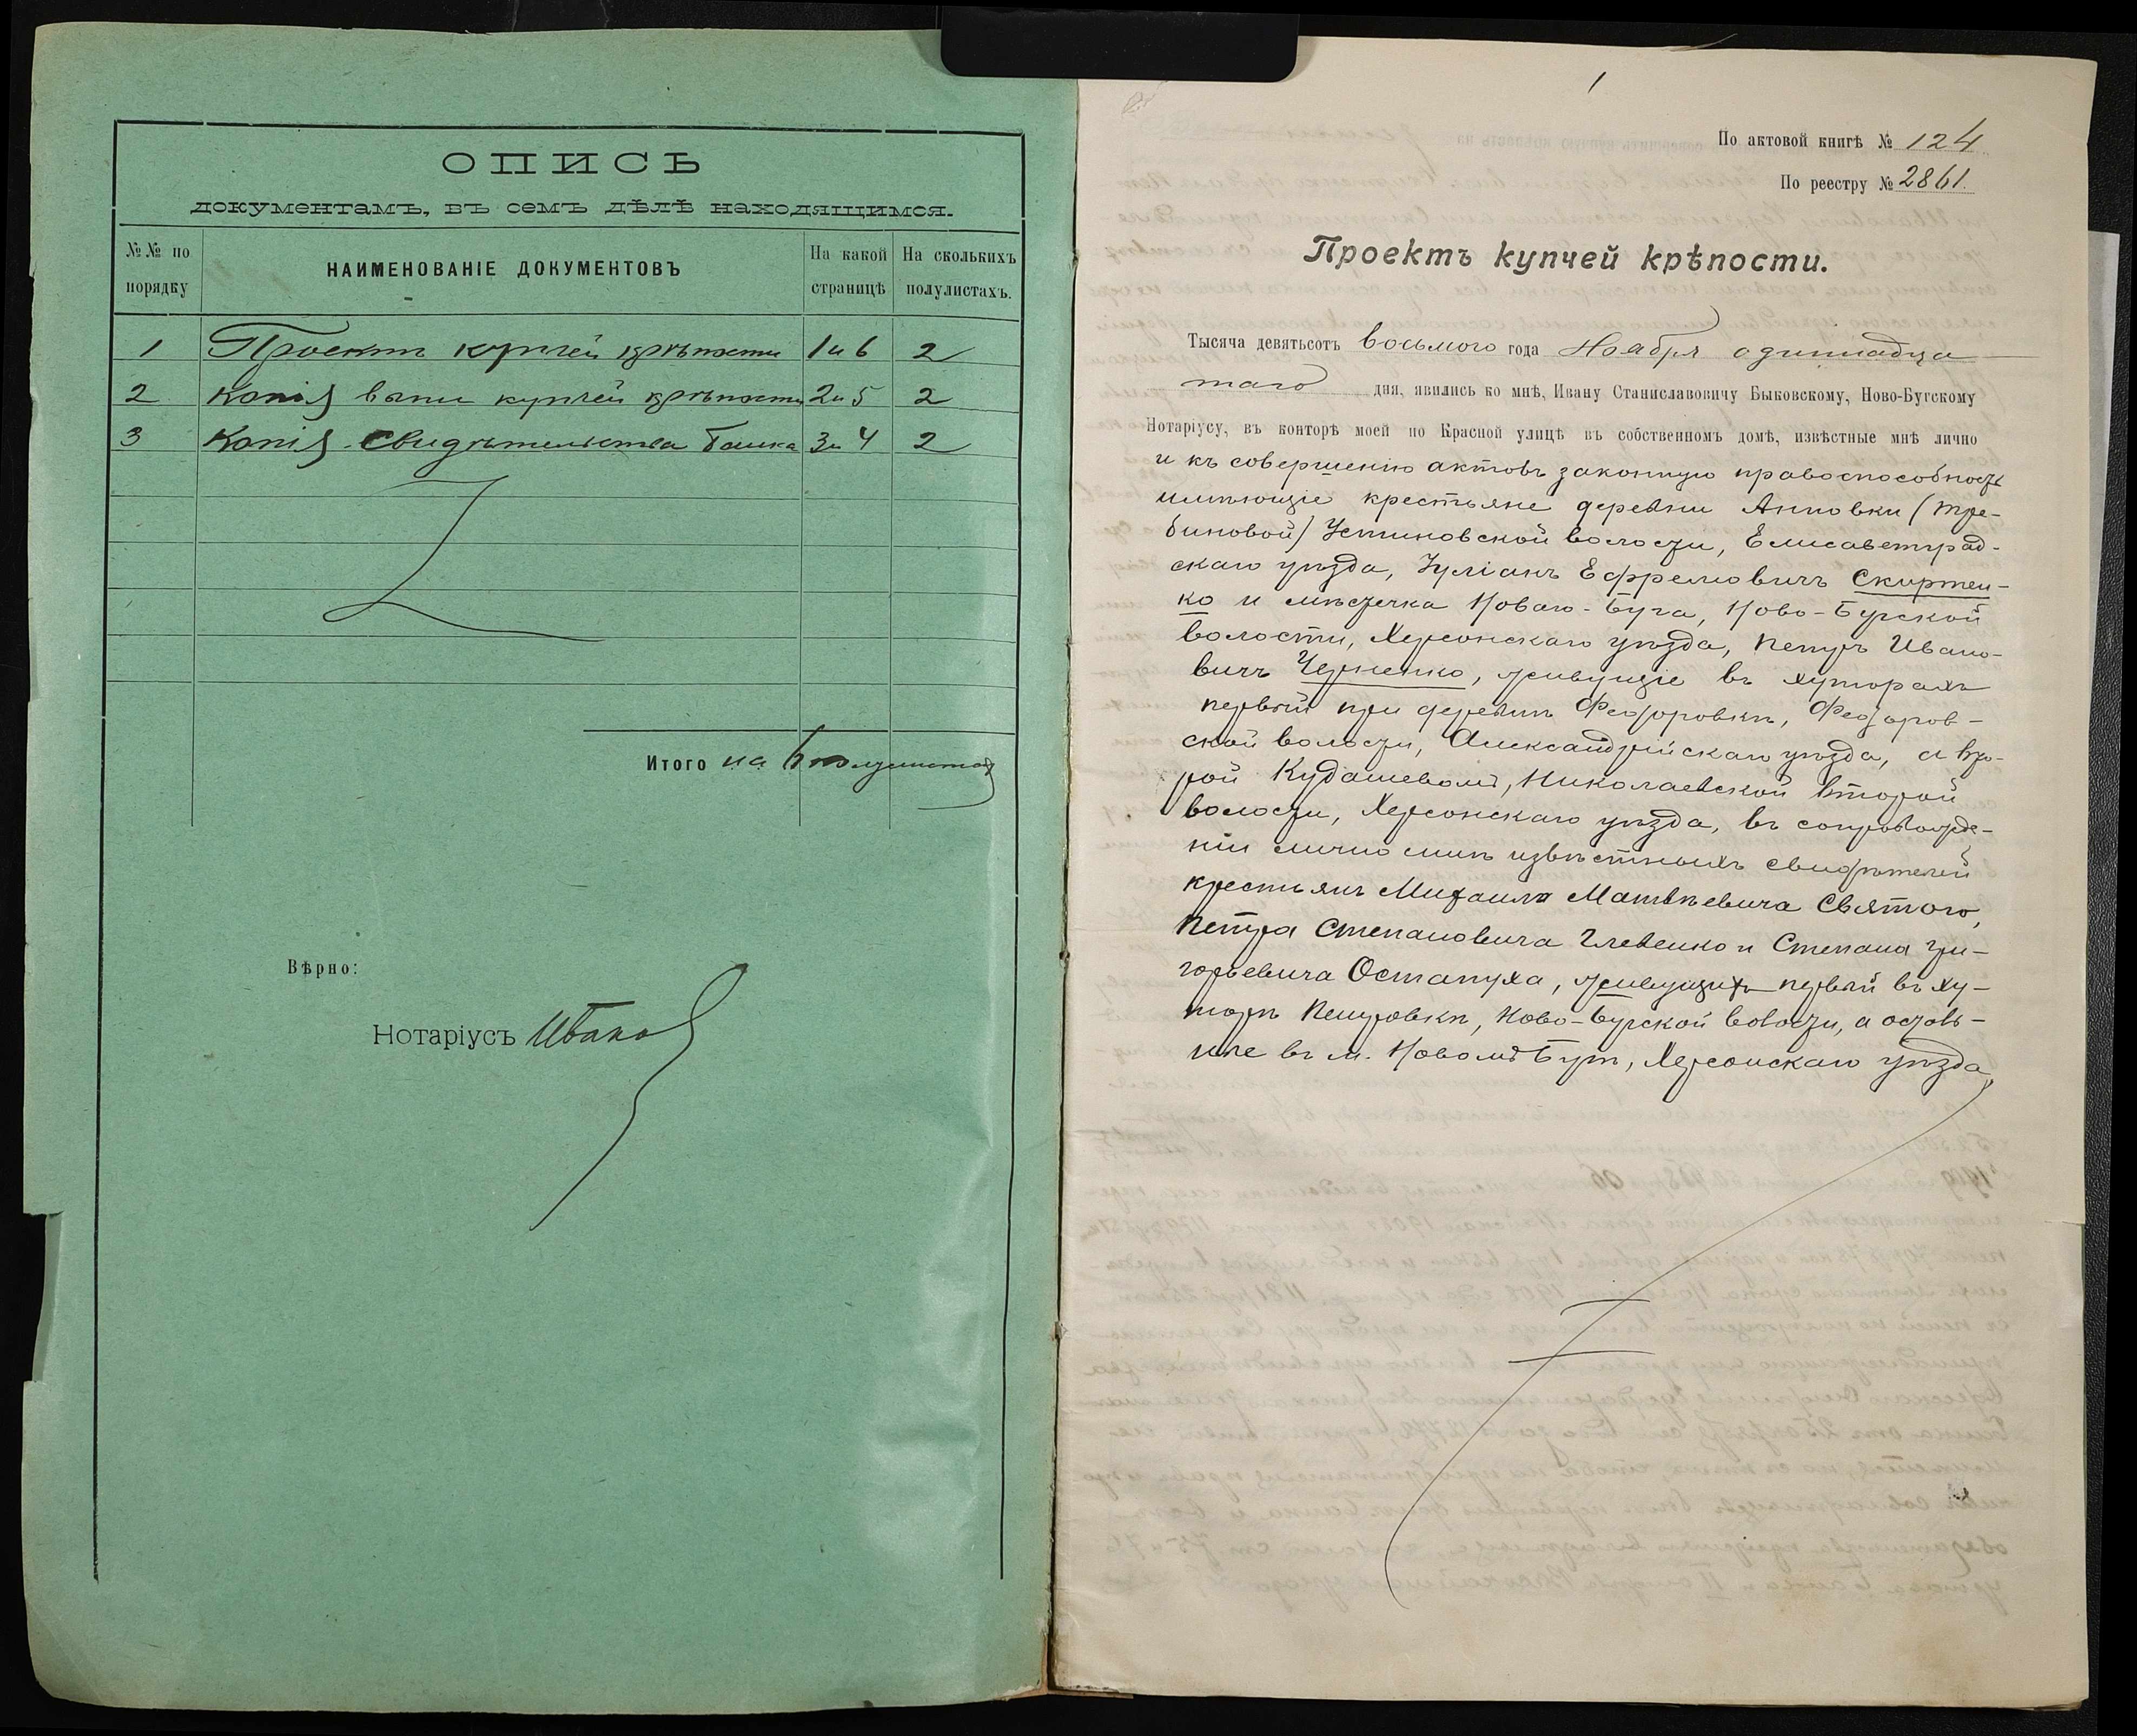 ОПИСЬ
документамъ, въ семъ дѣлѣ находящимся.
№№ по порядку
НАИМЕНОВАНІЕ ДОКУМЕНТОВЪ
На какой страницѣ
На сколькихъ полулистахъ.
1 Проектъ купчей крѣпости 1 и 6 2
2 Копія выписи купчей крѣпости 2 и 5 2
3 Копія свидѣтельства банка 3 и 4 2
Итого на 6 полулистахъ
Вѣрно:
Нотаріусъ
1
По актовой книгѣ № 124
По реестру № 2861.
Проектъ купчей крѣпости.
Тысяча девятьсотъ восьмого года Ноября одиннадца
таго дня, явились ко мнѣ, Ивану Станиславовичу Быковскому, Ново-Бугскому
Нотаріусу, въ конторѣ моей по Красной улицѣ въ собственномъ домѣ, извѣстные мнѣ лично
и къ совершенію актовъ законную правоспособность
имѣющіе крестьяне деревни Анновки (Тре-
биновой) Устиновской волости, Елисаветград-
скаго уѣзда, Іуліанъ Ефремовичъ Скиртен-
ко и мѣстечка Новаго-Буга, Ново-Бугской
волости, Херсонскаго уѣзда, Петръ Ивано-
вичъ Черненко, живущіе въ хуторахъ
первый при деревнѣ Федоровкѣ, Федоров-
ской волости, Александрійскаго уѣзда, а вто-
рой Кудашевомъ, Николаевской второй
волости, Херсонскаго уѣзда, въ сопровожде-
ніи лично мнѣ извѣстныхъ свидѣтелей
крестьянъ Михаила Матвѣевича Святого,
Петра Степановича Глевенко и Степана Гри-
горьевича Остапуха, живущихъ первый въ ху-
торѣ Петровкѣ, Ново-Бугской волости, а осталь-
ные въ м. Новомъ Бугѣ, Херсонскаго уѣзда,